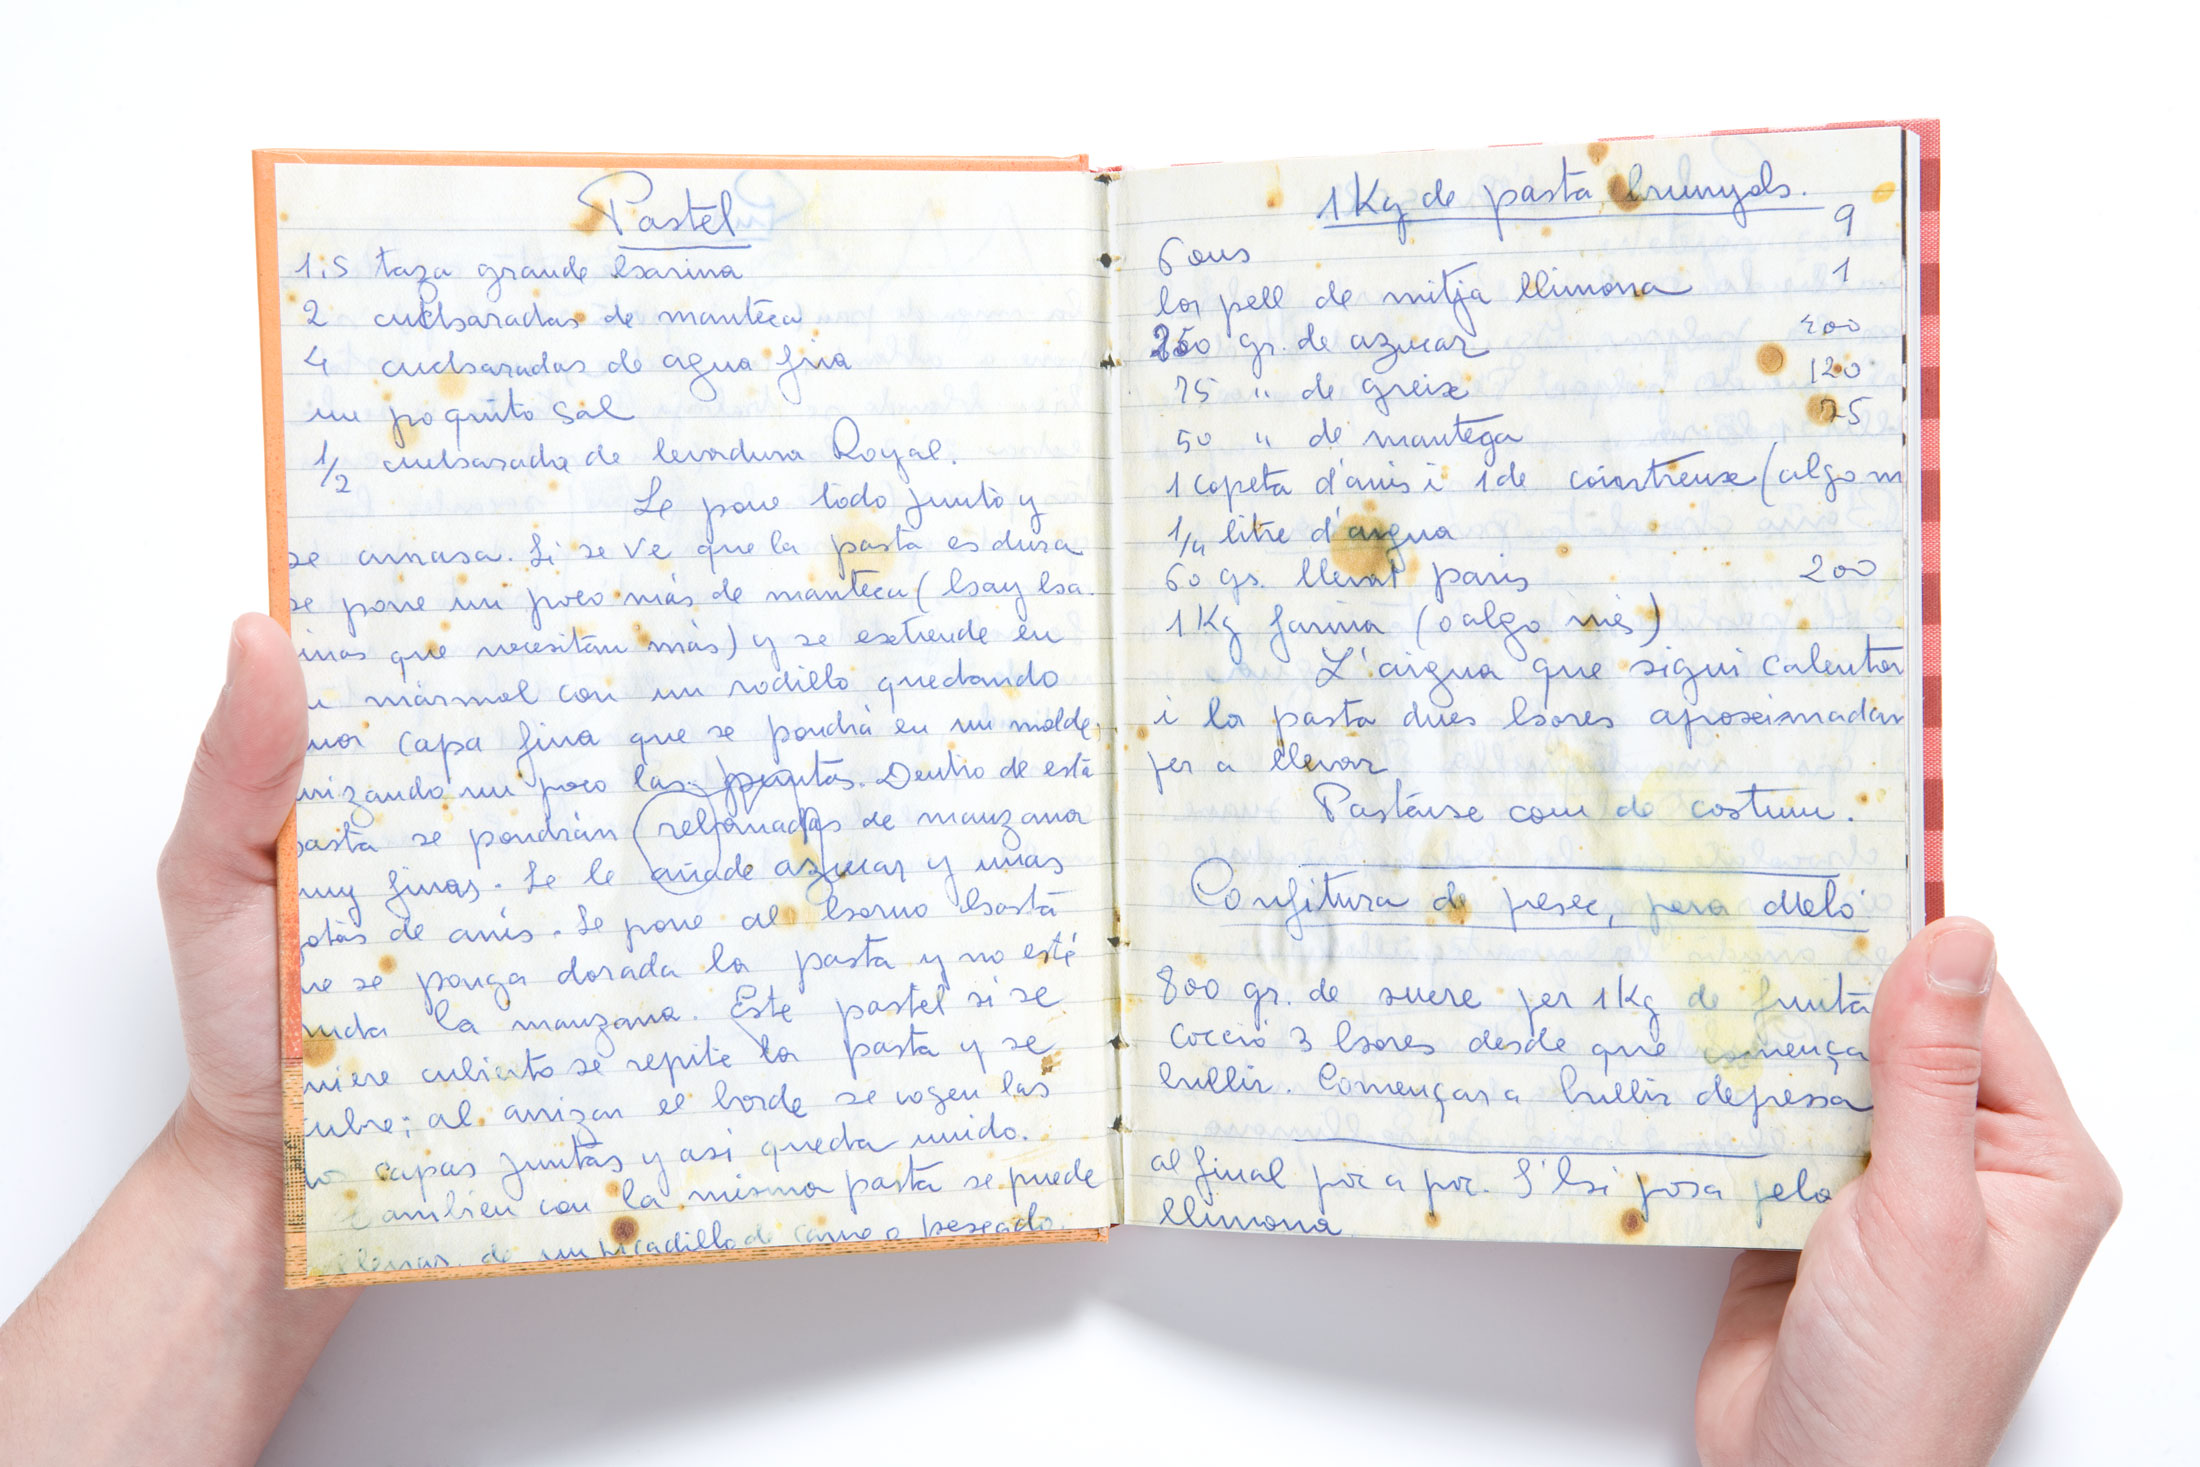 Pastel
1,5 taza grande harina
2 cucharadas de manteca
4 cucharadas de agua fria
un poquito sal
1/2 cucharada de levadura Royal.
Se pone todo junto y
se amasa. Si se ve que la pasta es dura
se pone un poco más de manteca (hay ha-
inas que necesitan más) y se extiende en
mármol con un rodillo quedando
capa fina que se pondrá en un molde,
rizando un poco las puntas. Dentro de esta
pasta se pondrán de manzana
muy finas. Se le añade azucar y unas
gotas de anís. Se pone al horno hasta
ue se ponga dorada la pasta y no esté
la manzana. Este pastel si se
uiere cubierto se repite la pasta y se
cubre; al rizar el borde se cogen las
capas juntas y asi queda unido.
Tambien con la misma pasta se puede
llenar de un picadillo de carne o pescado.
1 Kg de pasta brunyols.
9
6 ous
1
la pell de mitja llimona
400
250 gr. de azucar
120
75 " de greix
75
50 " de mantega
1 copeta d'anis i 1 de cointreux (algo m
1/4 litre d'aigua
60 gs. llevat paris
200
1 Kg farina (o algo més)
L'aigua que sigui calenta
i la pasta dues hores aproximadam
per a llevar
Pastarse com de costum.
Confitura de presec, pera Meló
800 gr. de sucre per 1 Kg de fruita
cocció 3 hores desde que comença
bullir. Començar a bullir depressa
al final poc a poc. S'hi posa pela
llimona